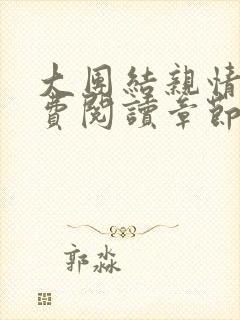 大團結親情
費閱讀章節
郭淼